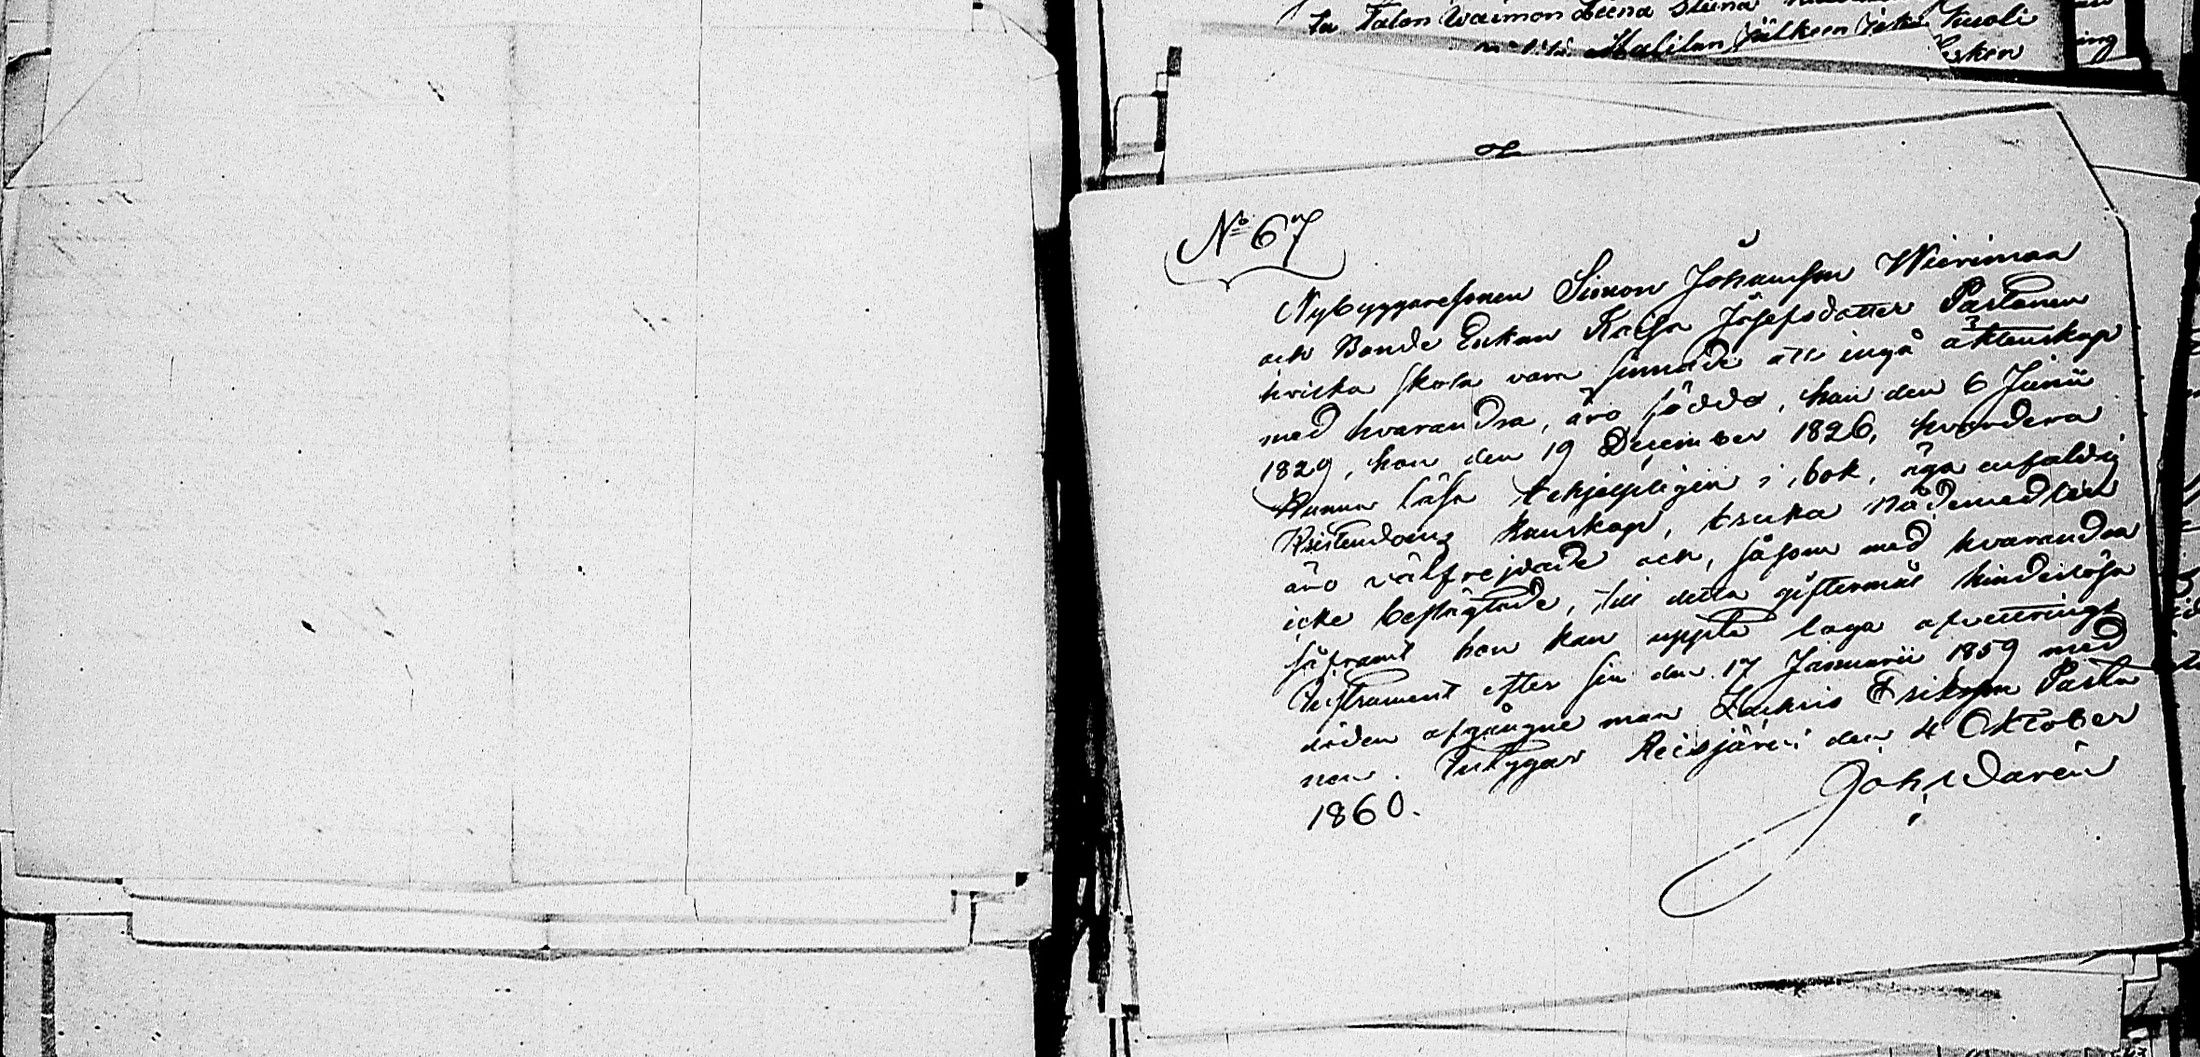 ta Talon Waimon Leena Stiina
Matilan jälkeen Kuoli
esken
ing
No 67
Nybyggaresonen Simon Johansson Wierimaa
och Bonde Enkan Kaisa Josefsdotter Pastanen
hvilka skola vara sinnade att ingå äktenskap
med hvarandra, äro födde, han den 6 Junii
1829, hon den 19 December 1826, hvardera
kunna läsa behjelpligen i bok, äga enfaldig
Kristendoms kunskap, bruka nådemedlen
äro välfrejdade och, såsom med hvarandra
icke beslägtade, till detta giftermål hinderlösa
såframt hon kan uppte laga afvittrings
Instrument efter sin den 17 Januarii 1859 med
döden afgångne man Zackris Eriksson Pasta
nen. Intygar Reisjärvi den 4 Oktober
1860.
Joh Darén